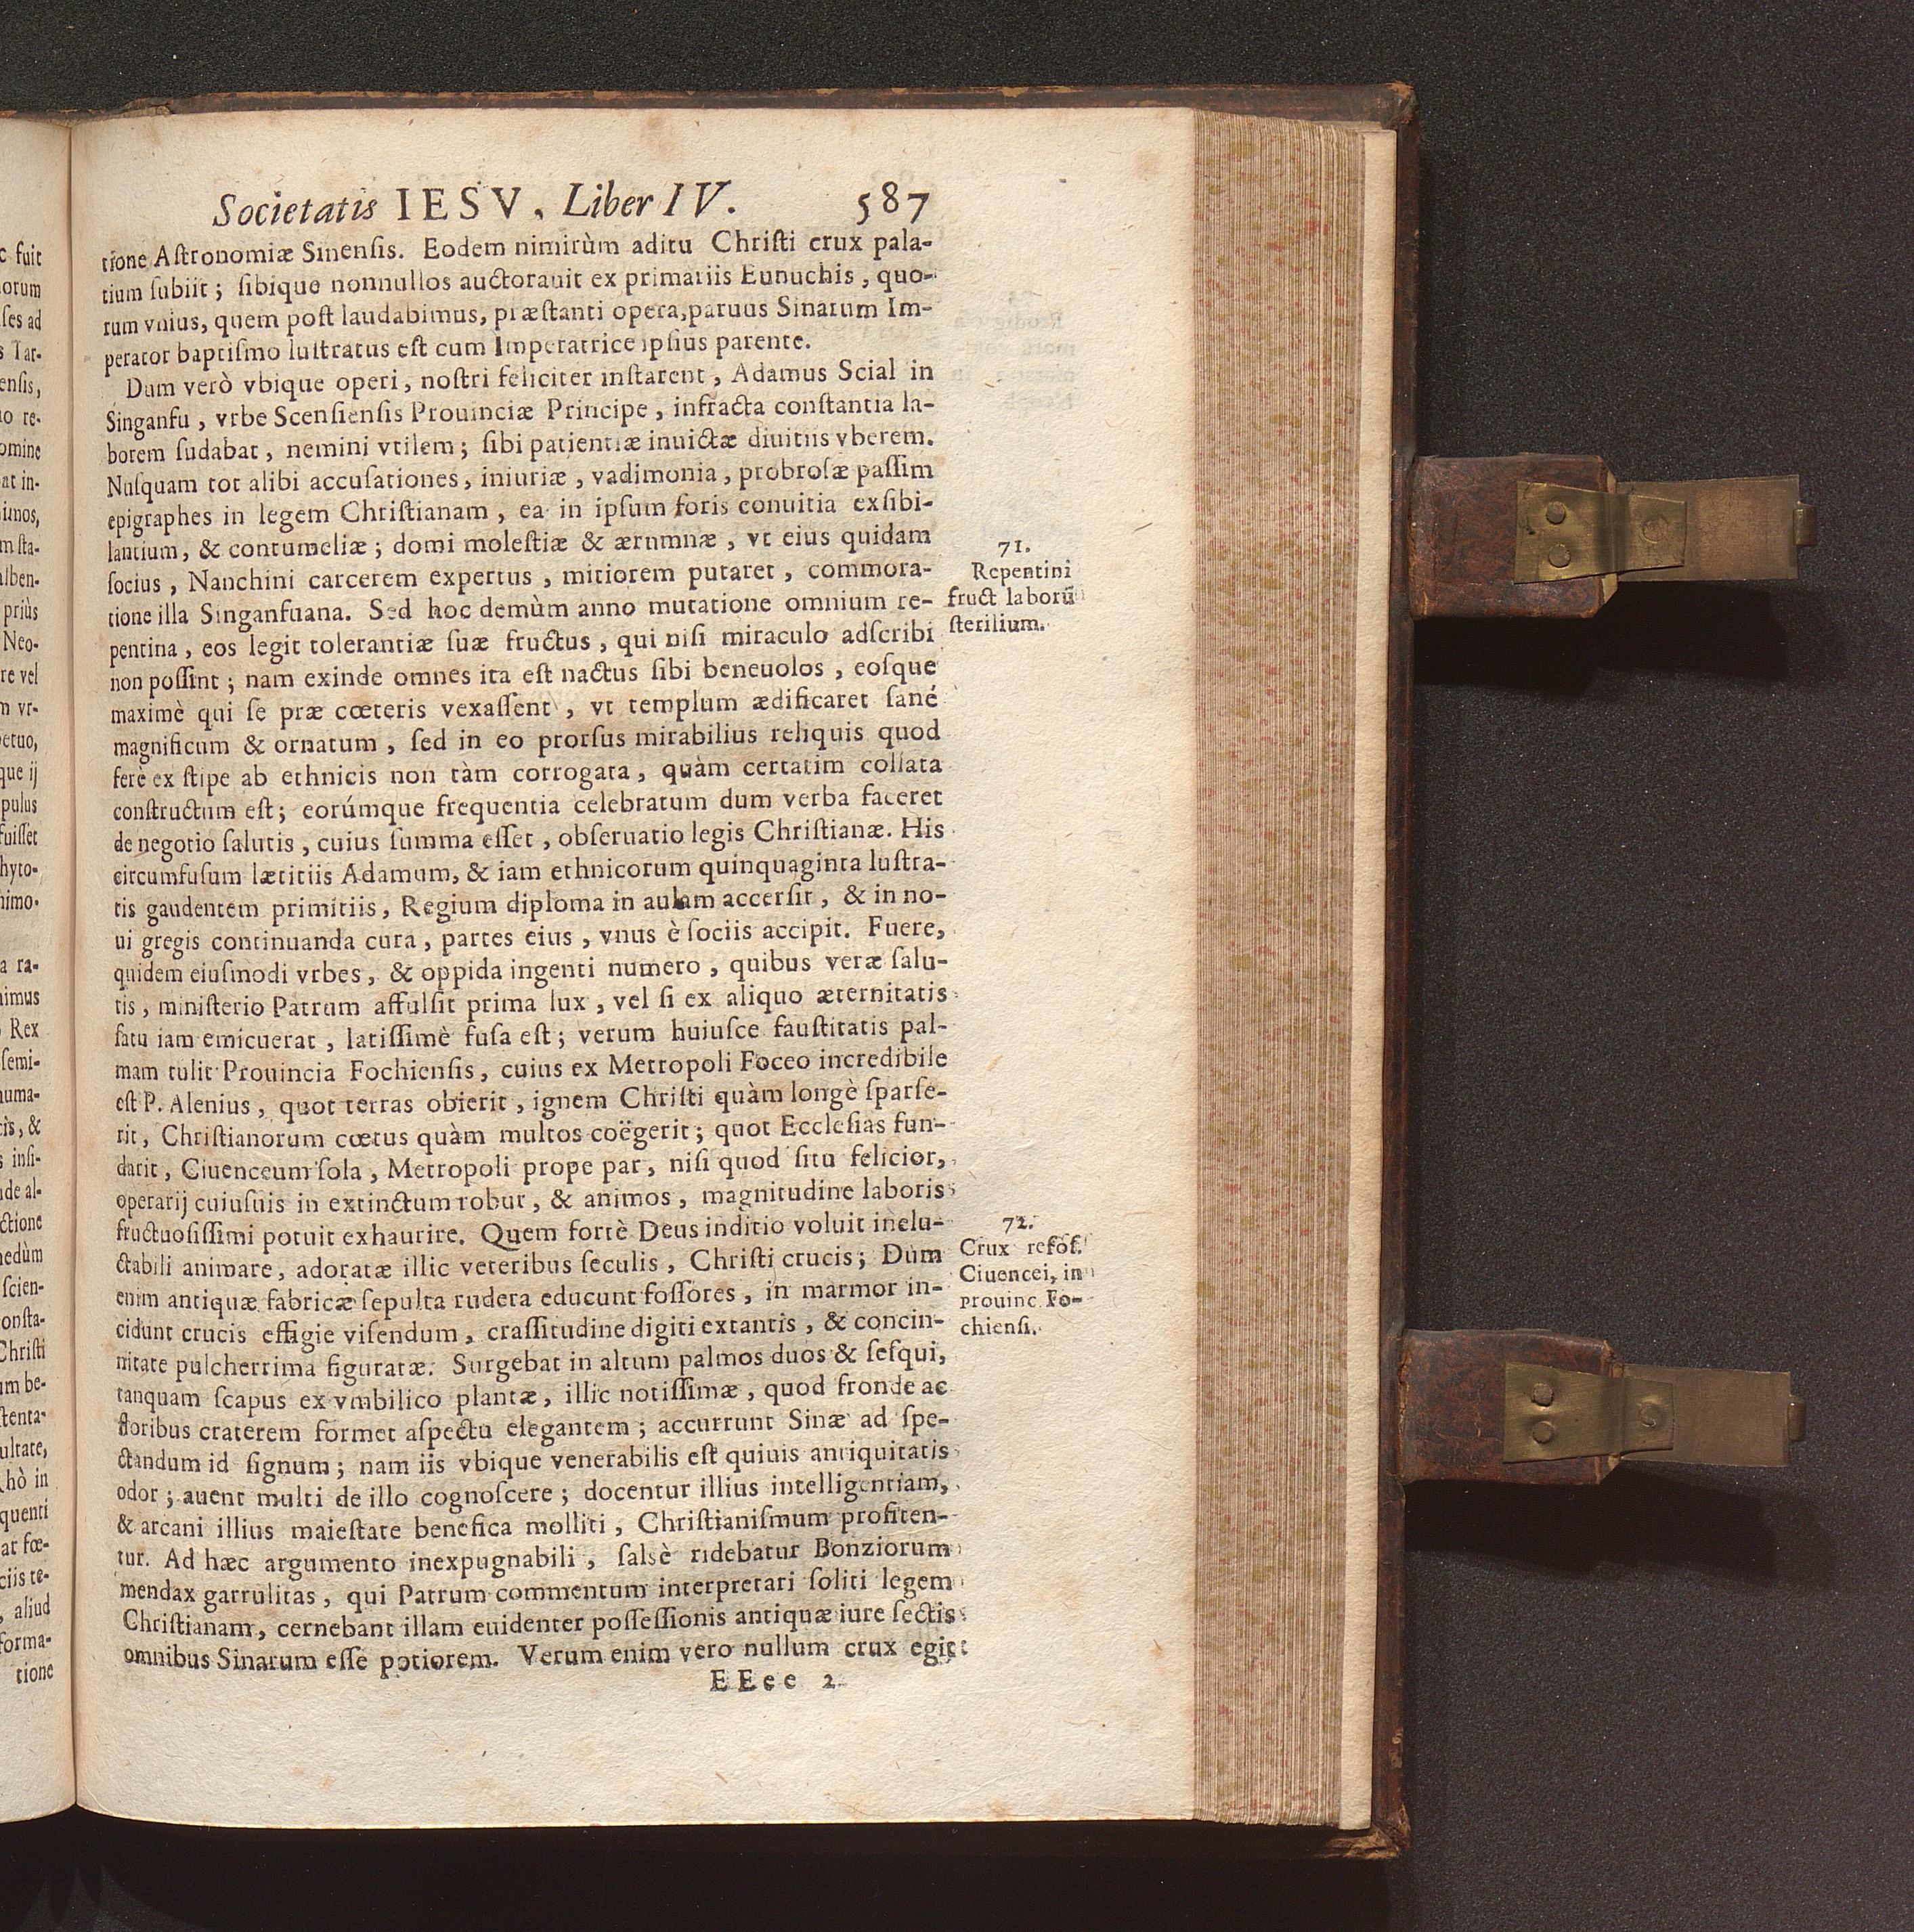 Societatis IESV, Liber IV. 587
tione Astronomiæ Sinensis. Eodem nimirùm aditu Christi crux pala-
tium subiit; sibique nonnullos auctorauit ex primariis Eunuchis, quo-
rum vnius, quem post laudabimus, præstanti opera, paruus Sinarum Im-
perator baptismo lustratus est cum Imperatrice ipsius parente.
Dum verò vbique operi, nostri feliciter instarent, Adamus Scial in
Singanfu, vrbe Scensiensis Prouinciæ Principe, infracta constantia la-
borem sudabat, nemini vtilem; sibi patientiæ inuictæ diuitiis vberem.
Nusquam tot alibi accusationes, iniuriæ, vadimonia, probrosæ passim
epigraphes in legem Christianam, ea in ipsum foris conuitia exsibi-
lantium, & contumeliæ; domi molestiæ & ærumnæ, vt eius quidam
socius, Nanchini carcerem expertus, mitiorem putaret, commora-
tione illa Singanfuana. Sed hoc demùm anno mutatione omnium re-
pentina, eos legit tolerantiæ suæ fructus, qui nisi miraculo adscribi
non possint; nam exinde omnes ita est nactus sibi beneuolos, eosque
maximè qui se præ cœteris vexassent, vt templum ædificaret sané
magnificum & ornatum, sed in eo prorsus mirabilius reliquis quod
ferè ex stipe ab ethnicis non tàm corrogata, quàm certatim collata
constructum est; eorúmque frequentia celebratum dum verba faceret
de negotio salutis, cuius summa esset, obseruatio legis Christianæ. His
circumfusum lætitiis Adamum, & iam ethnicorum quinquaginta lustra-
tis gaudentem primitiis, Regium diploma in aulam accersit, & in no-
ui gregis continuanda cura, partes eius, vnus è sociis accipit. Fuere,
quidem eiusmodi vrbes, & oppida ingenti numero, quibus veræ salu-
tis, ministerio Patrum affulsit prima lux, vel si ex aliquo æternitatis
satu iam emicuerat, latissimè fusa est; verum huiusce faustitatis pal-
mam tulit Prouincia Fochiensis, cuius ex Metropoli Foceo incredibile
est P. Alenius, quot terras obierit, ignem Christi quàm longè sparse-
rit, Christianorum cœtus quàm multos coëgerit; quot Ecclesias fun-
darit, Ciuenceum sola, Metropoli prope par, nisi quod situ felicior,
operarij cuiusuis in extinctum robur, & animos, magnitudine laboris
fructuosissimi potuit exhaurire. Quem fortè Deus inditio voluit inelu-
ctabili animare, adoratæ illic veteribus seculis, Christi crucis; Dum
enim antiquæ fabricæ sepulta rudera educunt fossores, in marmor in-
cidunt crucis effigie visendum, crassitudine digiti extantis, & concin-
nitate pulcherrima figuratæ. Surgebat in altum palmos duos & sesqui,
tanquam scapus ex vmbilico plantæ, illic notissimæ, quod fronde ac
floribus craterem formet aspectu elegantem; accurrunt Sinæ ad spe-
ctandum id signum; nam iis vbique venerabilis est quiuis antiquitatis
odor; auent multi de illo cognoscere; docentur illius intelligentiam,
& arcani illius maiestate benefica molliti, Christianismum profiten-
tur. Ad hæc argumento inexpugnabili, salsè ridebatur Bonziorum
mendax garrulitas, qui Patrum commentum interpretari soliti legem
Christianam, cernebant illam euidenter possessionis antiquæ iure sectis
omnibus Sinarum esse potiorem. Verum enim vero nullum crux egit
EEee 2
71.
Repentini
fruct laborũ
sterilium.
72.
Crux refos.
Ciuencei, in
prouinc Fo-
chiensi.
c fuit
ses ad
s Tar-
ensis,
omine
at in-
alben-
priùs
Neo-
re vel
etuo,
que ij
pulus
fuisset
a ra-
Rex
semi-
de al-
ctione
scien-
Christi
um be-
hò in
quenti
at fœ-
ciis te-
, aliud
forma-
tione